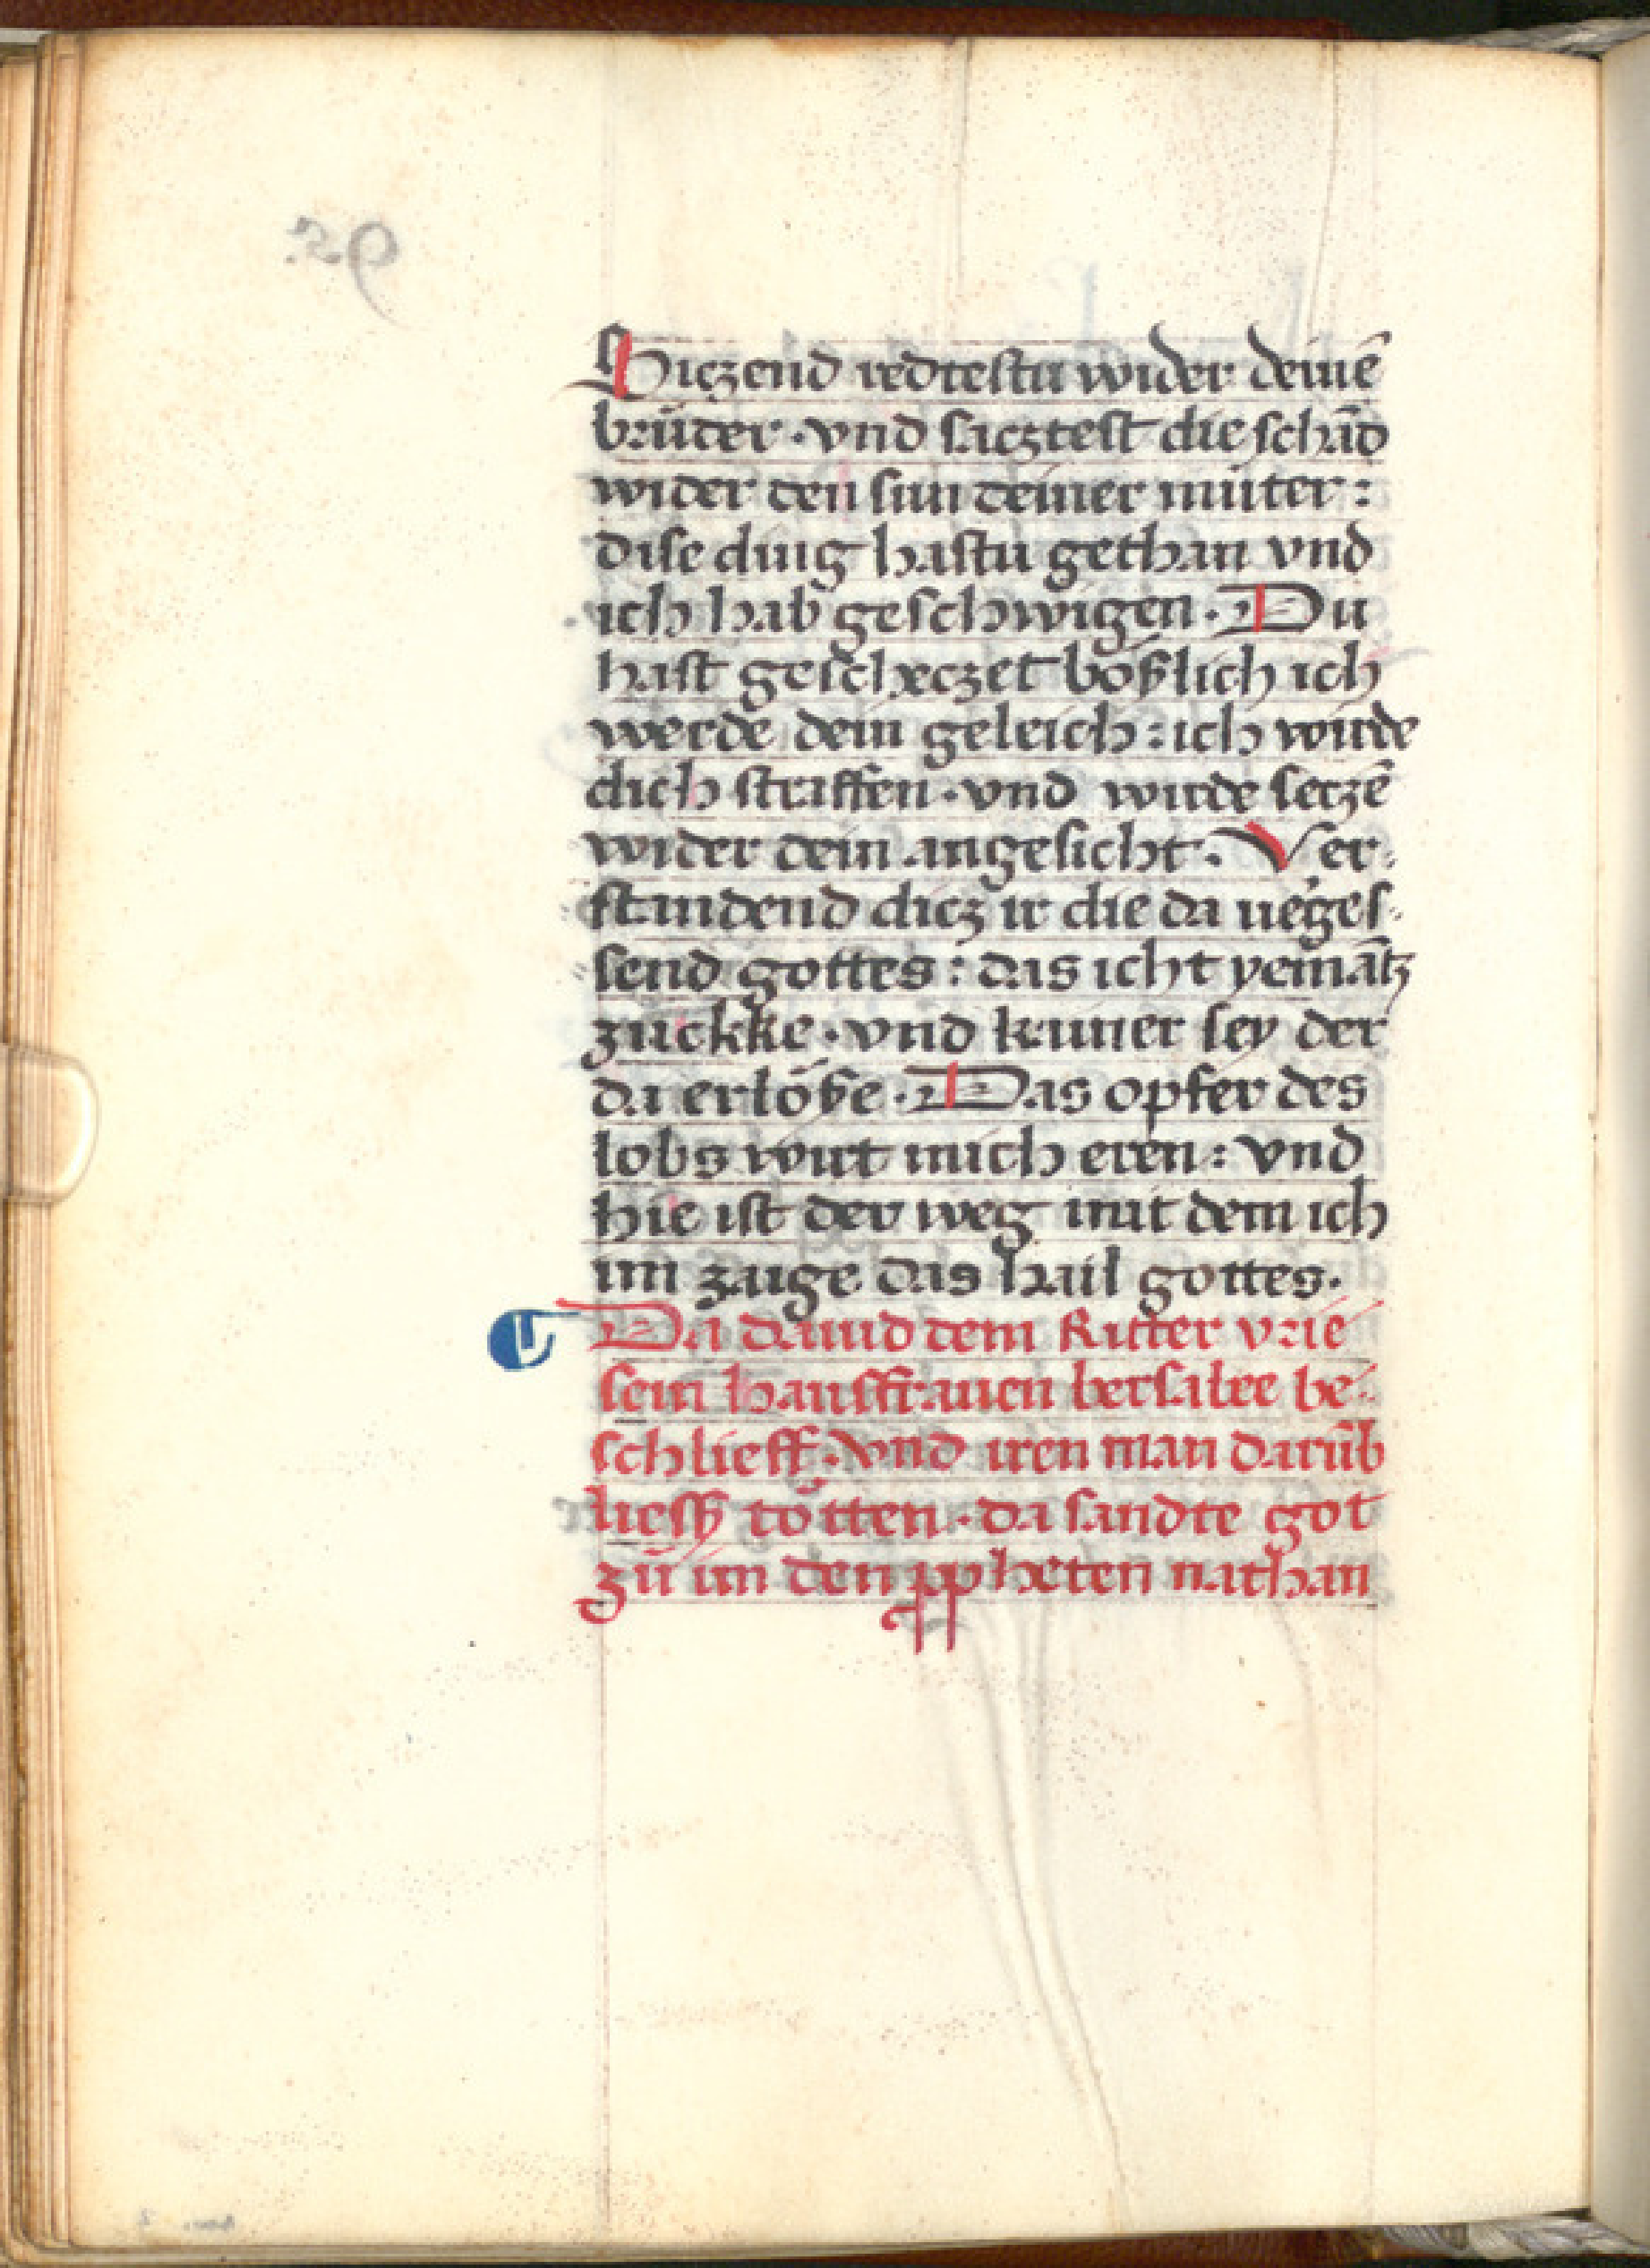 Siczend redtestu wider deinē
brůder · vnd sacztest die schād
wider den sun deiner můter :
dise ding hastu gethan vnd
ich hab geschwigen · Du
hast gescheczet bößlich ich
werde dein geleich : ich wirde
dich straffen · vnd wirde seczē
wider dein angesicht · Ver⸗
standend dicz ir die da u'ges⸗
send gottes : das icht yemātz
zuckke · vnd kainer sey der
da erlöße · Das opfer des
lobs wirt mich eren : vnd
hie ist der weg mit dem ich
im zaige das hail gottes ·
¶ Da dauid dem Ritter vrie
sein hausfrauen bersabee be⸗
schlieff · vnd iren man darūb
liesß tötten · da sandte got
zů im den ppheten nathan